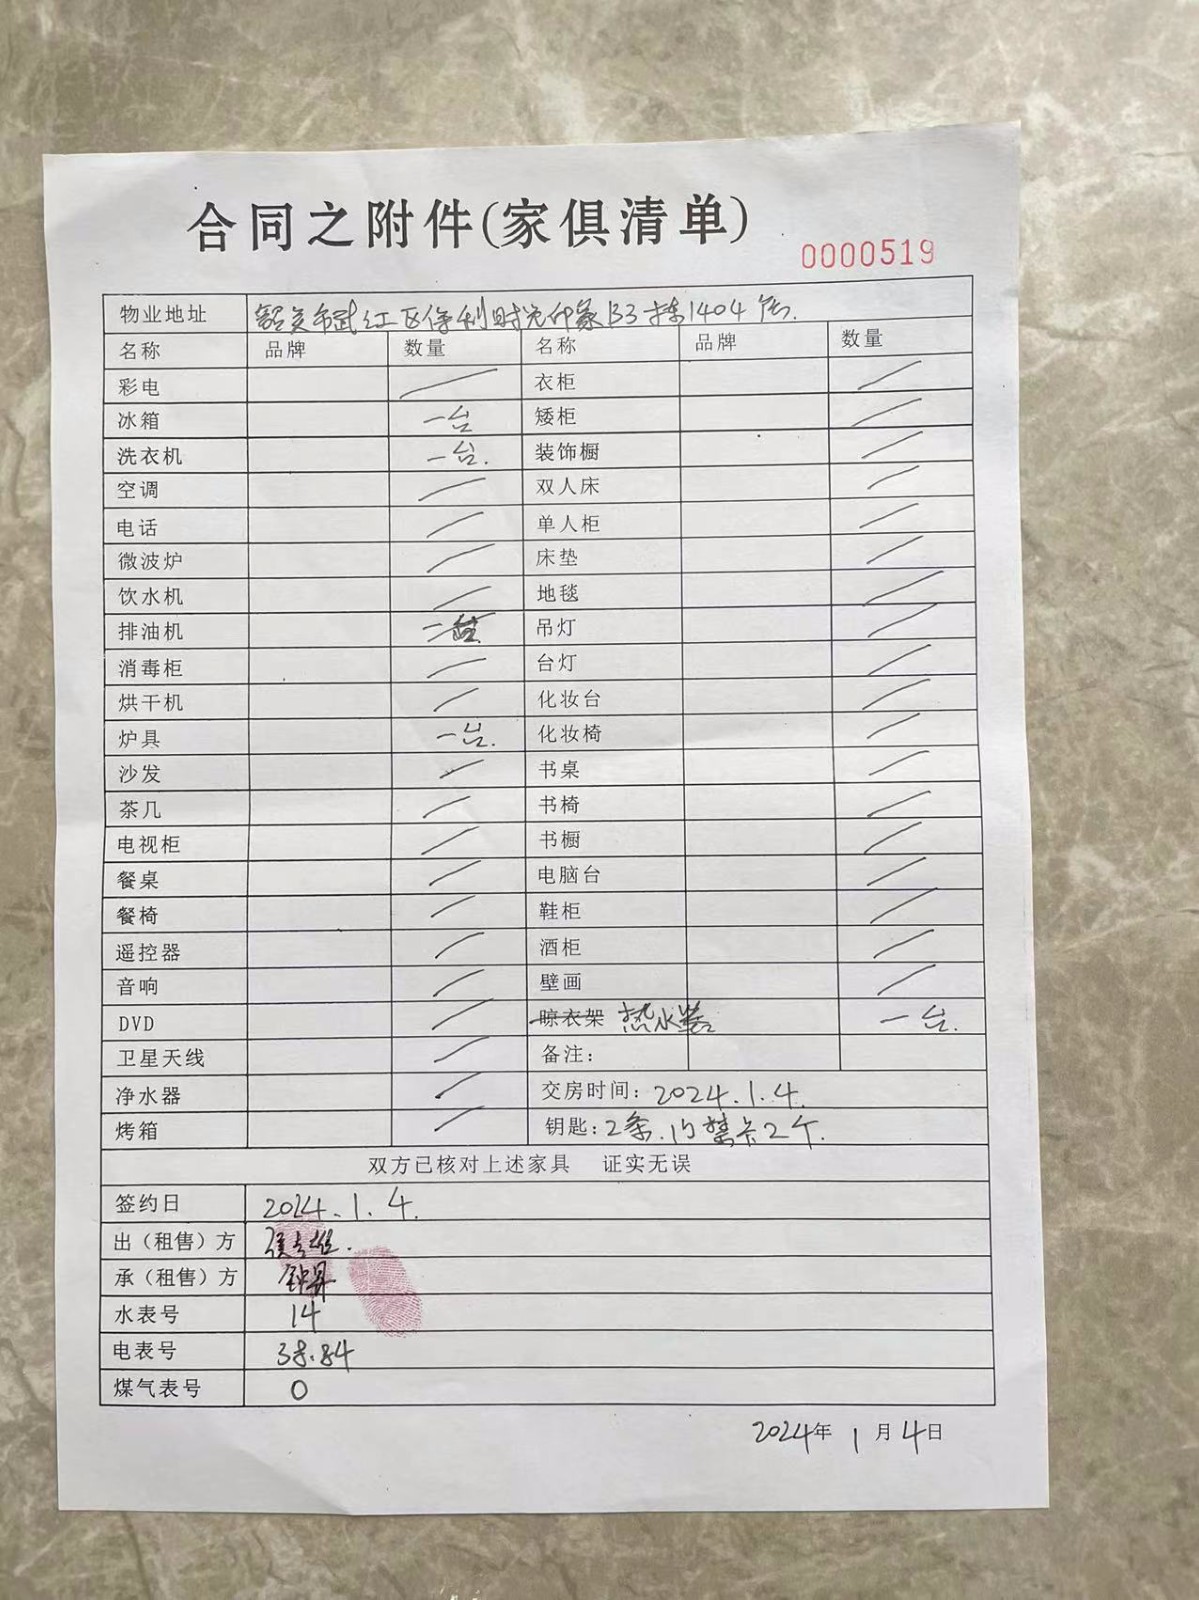 合同之附件(家俱清单)
0000519
物业地址 韶关市武江区保利时光印象B3栋1404房.
名称 品牌 数量 名称 品牌 数量
彩电 衣柜
冰箱 一台 矮柜
洗衣机 一台. 装饰橱
空调 双人床
电话 单人柜
微波炉 床垫
饮水机 地毯
排油机 一台 吊灯
消毒柜 台灯
烘干机 化妆台
炉具 一台. 化妆椅
沙发 书桌
茶几 书椅
电视柜 书橱
餐桌 电脑台
餐椅 鞋柜
遥控器 酒柜
音响 壁画
DVD 晾衣架 热水器 一台.
卫星天线 备注：
净水器 交房时间：2024.1.4.
烤箱 钥匙：2条.门禁卡2个.
双方已核对上述家具 证实无误
签约日 2024.1.4.
出（租售）方
承（租售）方 钟昇
水表号 14
电表号 38.84
煤气表号 0
2024年1月4日